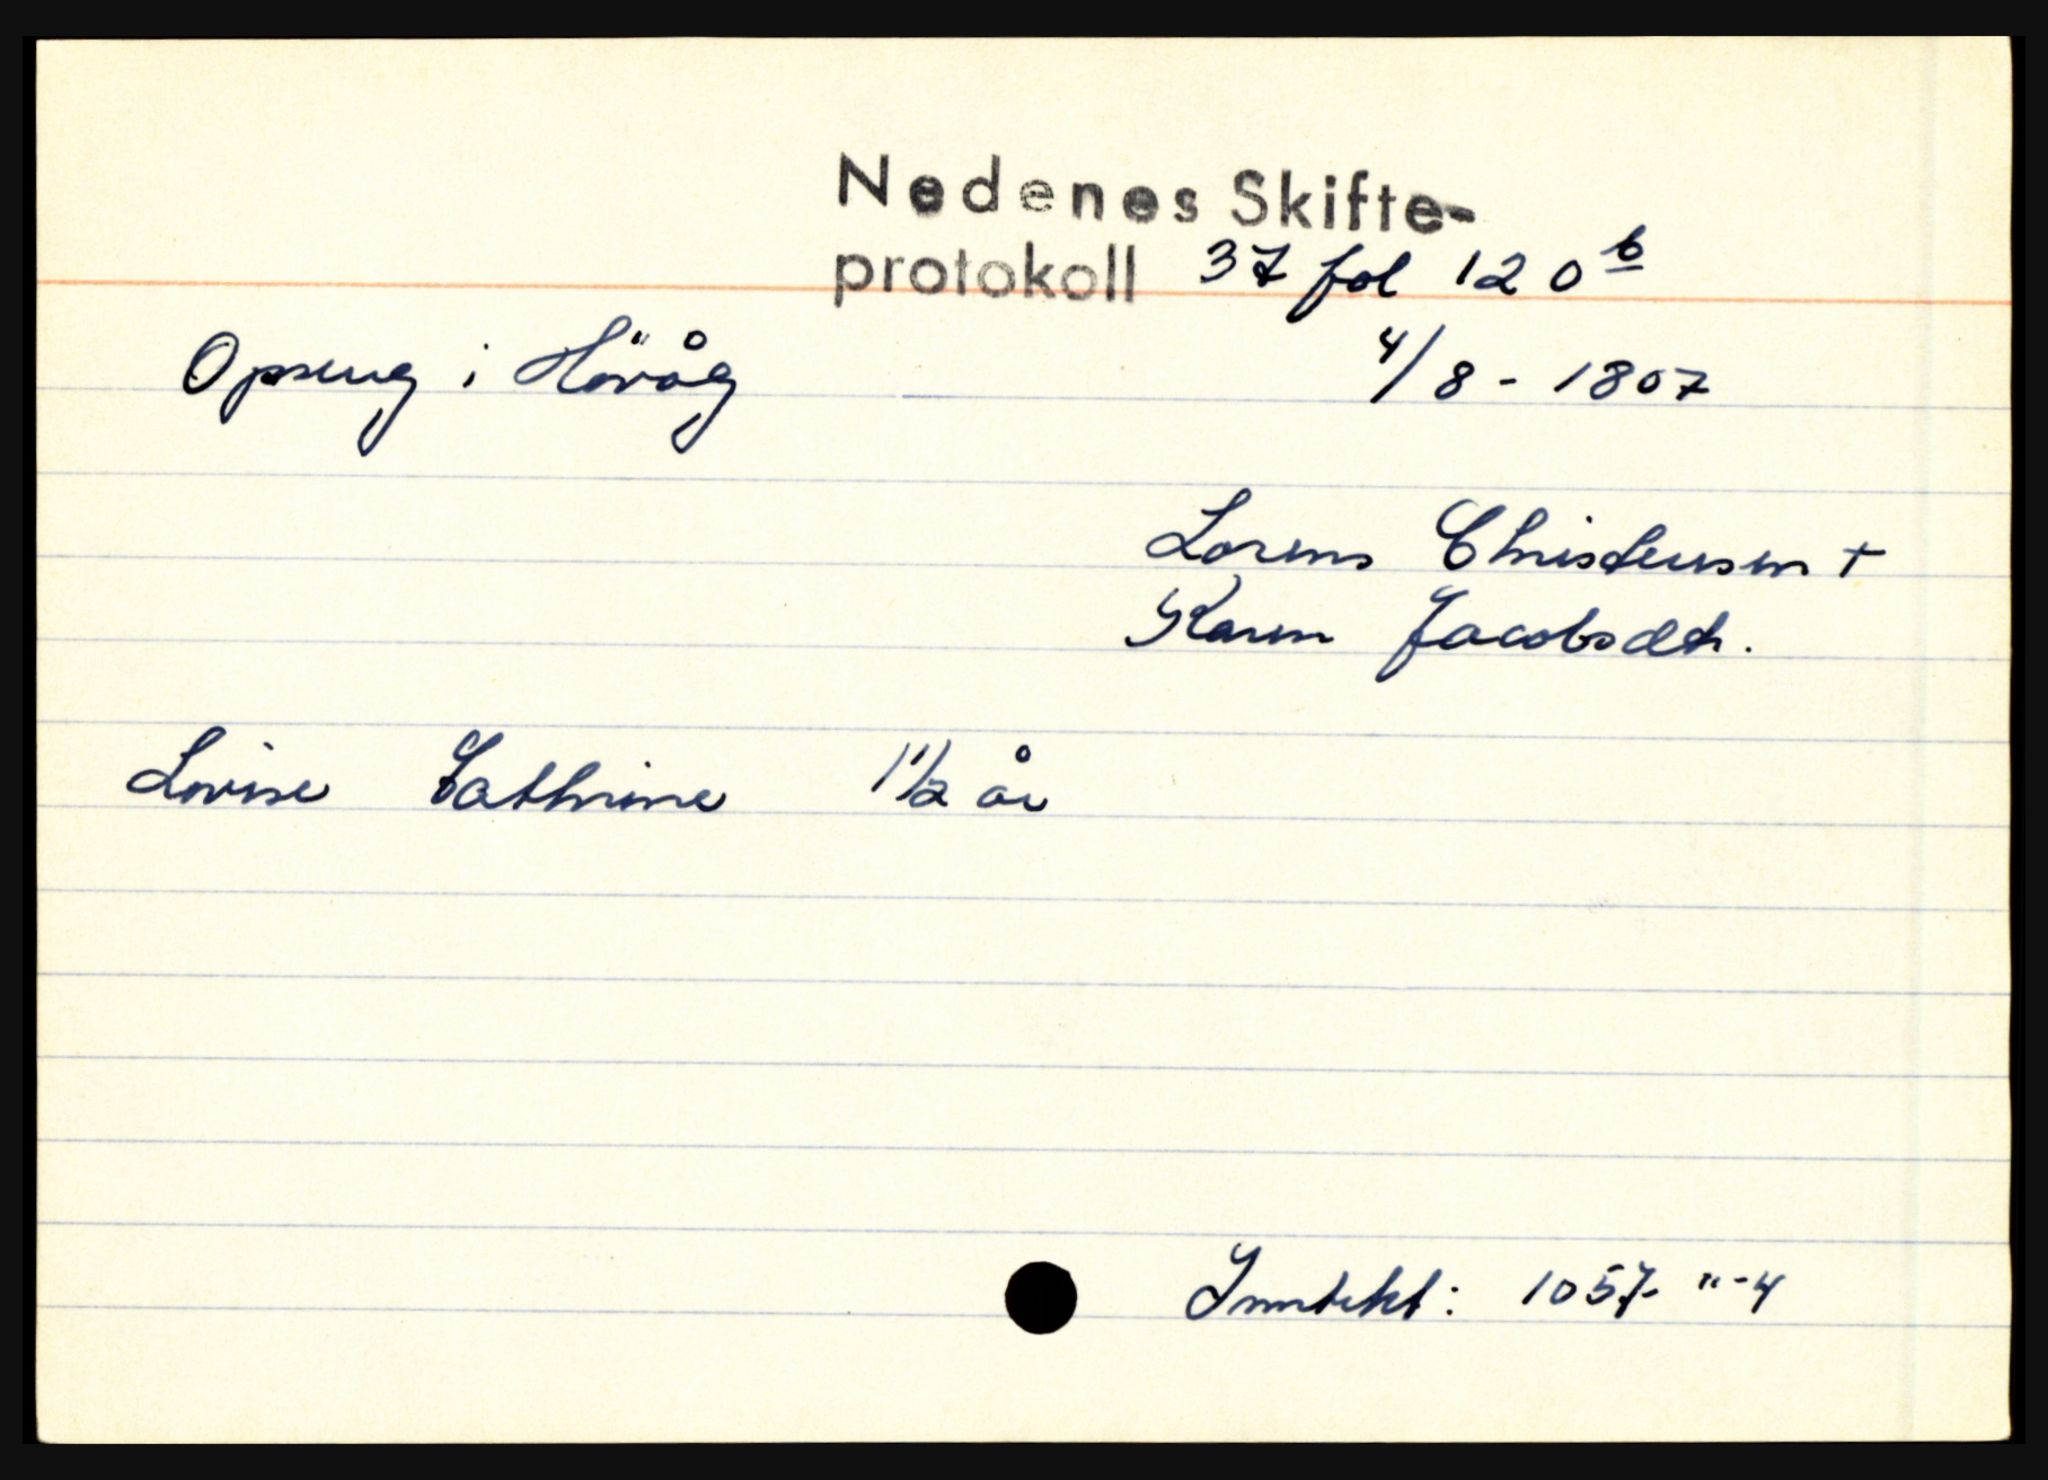 Nedenes Skifte-
protokoll 37 fol 120 b
Opsung i Hövåg 4/8 - 1807
Lorens Christensen +
Karen Jacobsdtr.
Lovise Cathrine 1 1/2 år
Inntekt: 1057- "-4